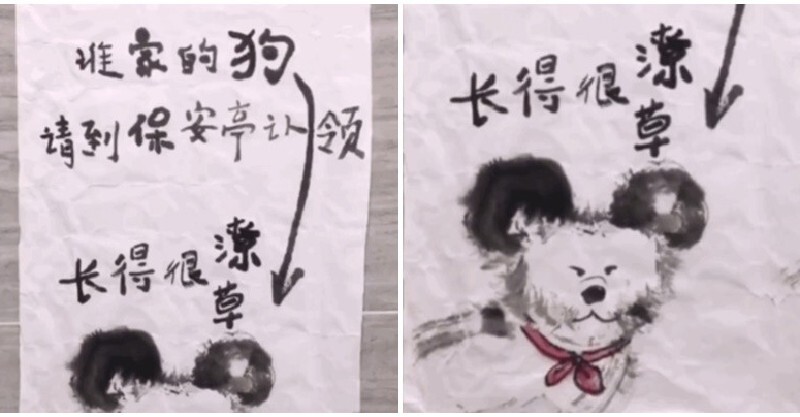 谁家的狗
请到保安亭认领
长得很潦草
长得很潦草